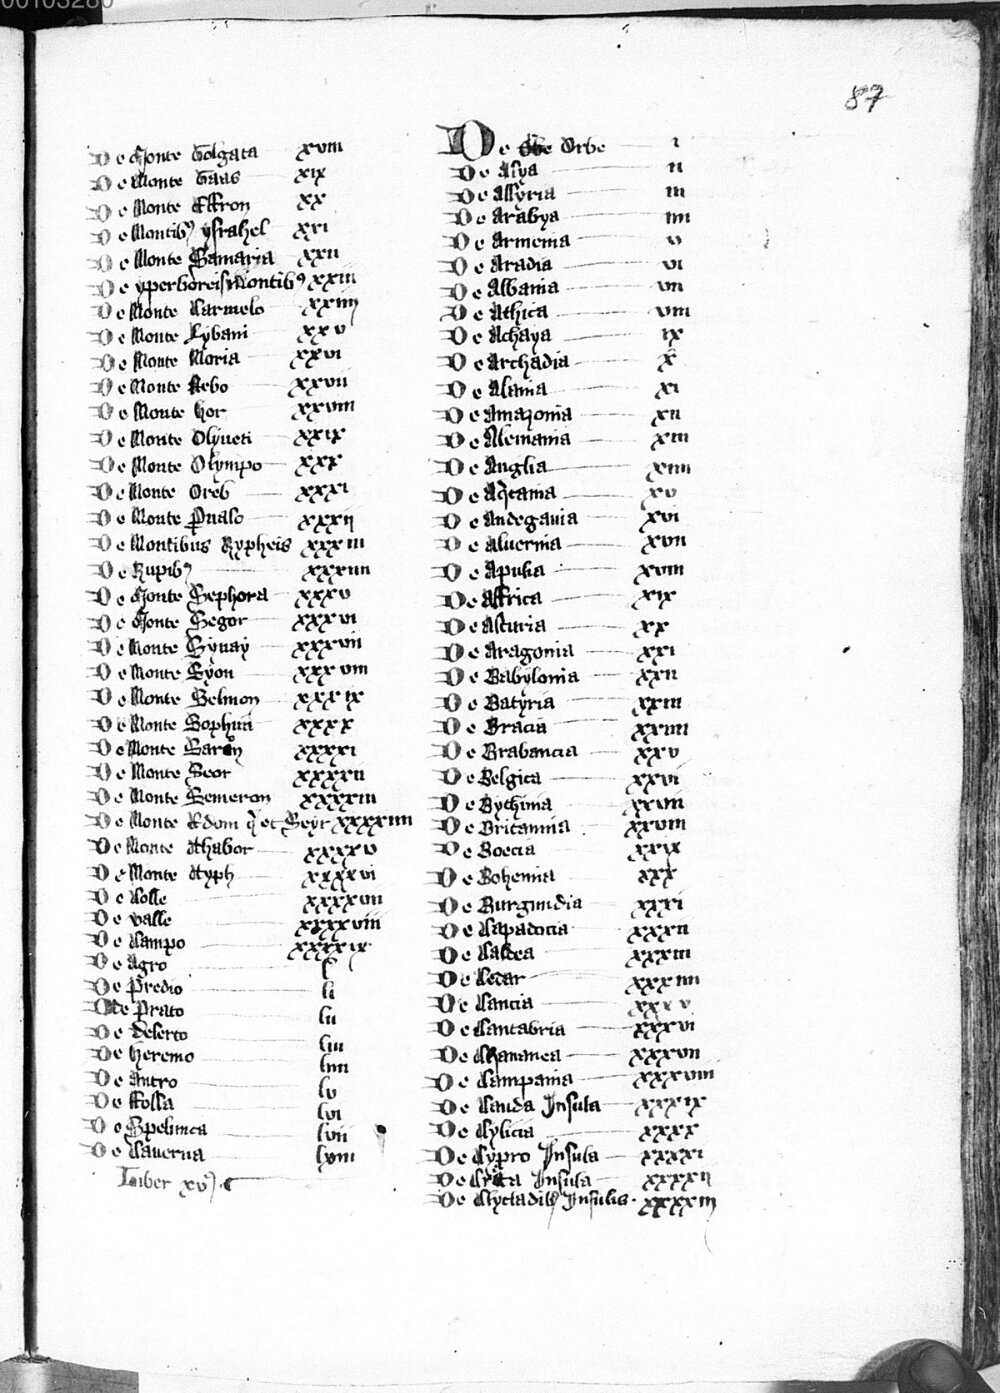 00103280
87
De Monte Golgata xviii
De Monte Gaas xix
De Monte Effron xx
De Montibꝰ ysrahel xxi
De Monte Samaria xxii
De yperboreis Montibꝰ xxiii
De Monte Carmelo xxiiii
De Monte Lybani xxv
De Monte Moria xxvi
De Monte Nebo xxvii
De Monte hor xxviii
De Monte Olyueti xxix
De Monte Olympo xxx
De Monte Oreb xxxi
De Monte ꝑnaso xxxii
De Montibus Rypheis xxxiii
De Rupibꝰ xxxiiii
De Monte Sephora xxxv
De Monte Segor xxxvi
De Monte Synay xxxvii
De Monte Syon xxxviii
De Monte Selmon xxxix
De Monte xxxx
De Monte Saron xxxxi
De Monte Seor xxxxii
De Monte Semeron xxxxiii
De Monte Edom et Seyr xxxxiiii
De Monte thabor xxxxv
De Monte xxxxvi
De Colle xxxxvii
De valle xxxxviii
De Campo xxxxix
De Agro l
De Predio li
De Prato lii
De deserto liii
De heremo liiii
De Antro lv
De fossa lvi
De Spelunca lvii
De Cauerna lviii
Liber xv
De Orbe i
De Asya ii
De Assyria iii
De Arabya iiii
De Armenia v
De Aradia vi
De Albania vii
De Athica viii
De Achaya ix
De Archadia x
De Alania xi
De Amazonia xii
De Alemania xiii
De Anglia xiiii
De Aq̄tania xv
De Andegauia xvi
De Aluernia xvii
De Apulia xviii
De Affrica xix
De Asturia xx
De Aragonia xxi
De Babylonia xxii
De Batyria xxiii
De Bracia xxiiii
De Brabancia xxv
De Belgica xxvi
De Bythinia xxvii
De Britannia xxviii
De Boecia xxix
De Bohemia xxx
De Burgundia xxxi
De Capadocia xxxii
De Caldea xxxiii
De Cedar xxxiiii
De Cancia xxxv
De Cantabria xxxvi
De Chananea xxxvii
De Campania xxxviii
De Cauda Insula xxxix
De Cylicia xxxx
De Cypro Insula xxxxi
De Creta Insula xxxxii
De Cycladibꝰ Insulis xxxxiii